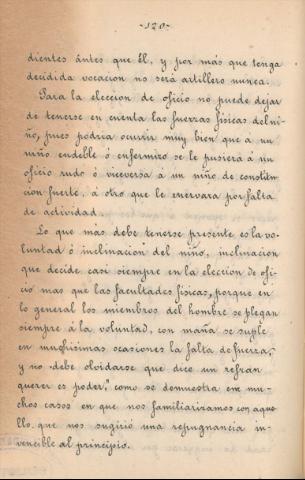 -120-
dientes ántes que él, y por más que tenga
decidida vocacion no será artillero nunca.
Para la eleccion de oficio no puede dejar
de tenerse en cuenta las fuerzas físicas del ni-
ño, pues podria ocurrir muy bien que á un
niño endeble ó enfermizo se le pusiera á un
oficio rudo ó viceversa á un niño de constitu-
cion fuerte, á otro que le enervara por falta
de actividad.
Lo que más debe tenerse presente es la vo-
luntad ó inclinacion del niño, inclinacion
que decide casi siempre en la eleccion de ofi-
cio mas que las facultades físicas, porque en
lo general los miembros del hombre se plegan
siempre á la voluntad, con maña se suple
en muchisimas ocasiones la falta de fuerza,
y no debe olvidarse que dice un refran
querer es poder," como se demuestra en mu-
chos casos en que nos familiarizamos con aque-
llo que nos sugirió una repugnancia in-
vencible al principio.